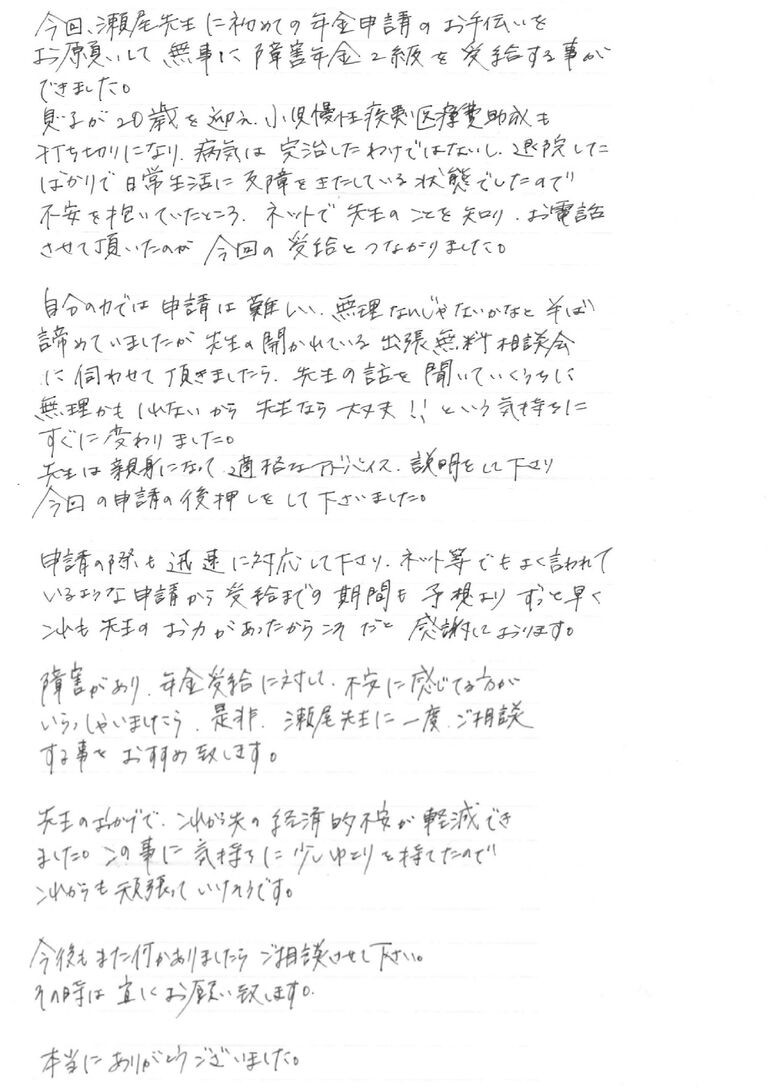 今回、瀬尾先生に初めての年金申請のお手伝いを
お願いして無事に障害年金2級を受給する事が
できました。
息子が20歳を迎え、小児慢性疾患医療費助成も
打ち切りになり、病気は完治したわけではないし、退院した
ばかりで日常生活に支障をきたしている状態でしたので
不安を抱いていたところ、ネットで先生のことを知り、お電話
させて頂いたのが今回の受給とつながりました。
自分の力では申請は難しい、無理なんじゃないかなと半ば
諦めていましたが先生の開かれている出張無料相談会
に伺わせて頂きましたら、先生の話を聞いていくうちに
無理かもしれないから先生なら大丈夫!!という気持ちに
すぐに変わりました。
先生は親身になって適格なアドバイス、説明をして下さり
今回の申請の後押しをして下さいました。
申請の際も迅速に対応して下さり、ネット等でもよく言われて
いるような申請から受給までの期間も予想よりずっと早く
これも先生のお力があったからこそだと感謝しております。
障害があり、年金受給に対して、不安に感じてる方が
いらっしゃいましたら、是非、瀬尾先生に一度、ご相談
する事をおすすめ致します。
先生のおかげで、これから先の経済的不安が軽減でき
ました。この事に気持ちに少しゆとりを持てたので
これからも頑張っていけそうです。
今後もまた何かありましたらご相談させて下さい。
その時は宜しくお願い致します。
本当にありがとうございました。